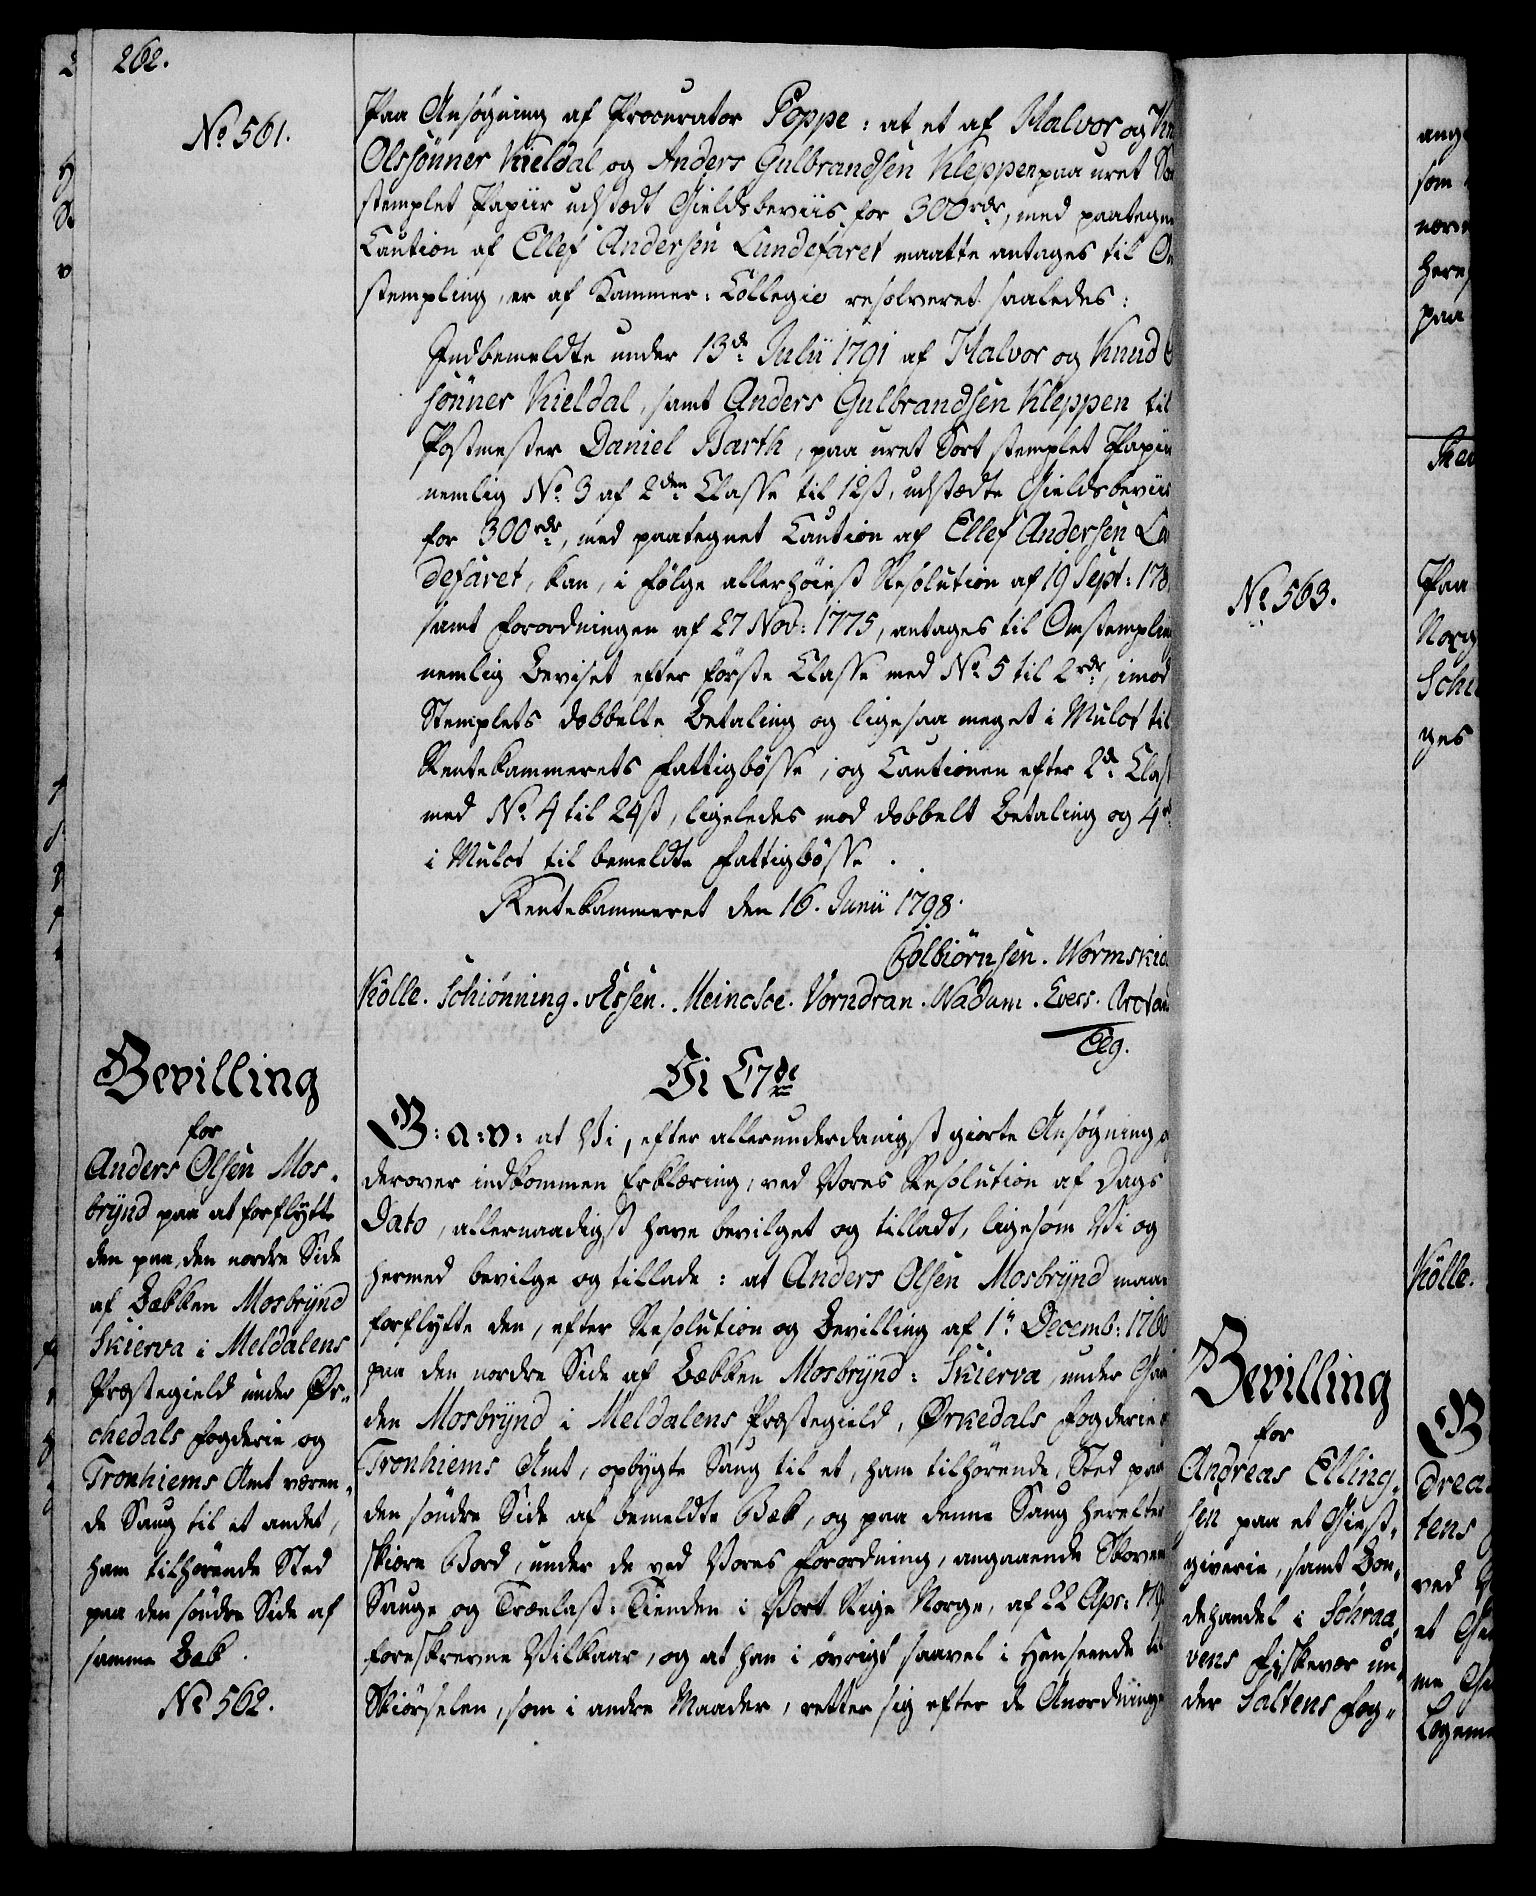 262.
No 561.
Paa Ansøgning af Procurator Poppe: at et af Halvor og
Olssønner Kieldal og Anders Gulbrandsen Kleppen paa uret
stemplet Papiir udstædt Gieldsbeviis for 300 rdr, med paategnet
Caution af Ellef Andersen Lundefaret maatte antages til
stempling, er af Kammer-Collegio resolveret saaledes:
Indbemeldte under 13de Julii 1791 af Halvor og Knud
sönner Kieldal, samt Anders Gulbrandsen Kleppen til
Postmester Daniel Barth, paa uret Sort stemplet Papiir
nemlig No 3 af 2den Classe til 12ß, udstædte Gieldsbeviis
for 300 rdr, med paategnet Caution af Ellef Andersen
defaret, kan, i Følge allerhøiest Resolution af 19 Sept: 178
samt Forordningen af 27 Nov: 1775, antages til Omstempling
nemlig Beviset efter første Classe med No 5 til 2 rdr, imod
Stemplets dobbelte Betaling og ligesaa meget i Mulct til
Rentekammerets Fattigbøsse; og Cautionen efter 2den
med No 4 til 24ß, ligeledes mod dobbelt Betaling og 4
i Mulct til bemeldte Fattigbøsse.
Rentekammeret den 16. Junii 1798.
Colbiörnsen. Wormskio
Kölle. Schiönning. Essen. Meincke. Vorndran. Wadum. Evers.
Bevilling
for
Anders Olsen Mos-
brÿnd paa at forflytte
den paa den nordre Side
af Bækken Mosbrÿnd
Skierva i Meldalens
Præstegield under Ør-
chedals Fogderie og
Tronhiems Amt væren-
de Saug til et andet,
ham tilhørende Sted
paa den søndre Side af
samme Bæk.
No 562.
G: a: v: at Vi, efter allerunderdanigst giorte Ansøgning
derover indkommen Erklæring, ved Vores Resolution af Dags
Dato, allernaadigst have bevilget og tilladt, ligesom Vi og
hermed bevilge og tillade: at Anders Olsen Mosbrÿnd maae
forflytte den, efter Resolution og Bevilling af 1te Decemb: 1760
paa den nordre Side af Bækken Mosbrÿnd: Skierva, under
den Mosbrÿnd i Meldalens Præstegield, Ørkedals Fogderie
Tronhiems Amt, opbygte Saug til et, ham tilhørende, Sted paa
den søndre Side af bemeldte Bæk, og paa denne Saug herefter
skiære Bord, under de ved Vores Forordning, angaaende Skovene
Sauge og Trælast-Tienden i Vort Rige Norge, af 22 Apr:
foreskrevne Vilkaar, og at han i øvrigt saavel i Henseende til
Skiørselen, som i andre Maader, retter sig efter de Anordninger
No 563.
Bevilling
for
Andreas Elling-
sen paa et Giest-
giverie, samt Bon-
dehandel i
vens Fiskevær un-
der Saltens Fog-
ang
som
here
paa
Paa
Norg
Schi
ges
Kölle.
G
drea
tens
ved
et
me
Logeme